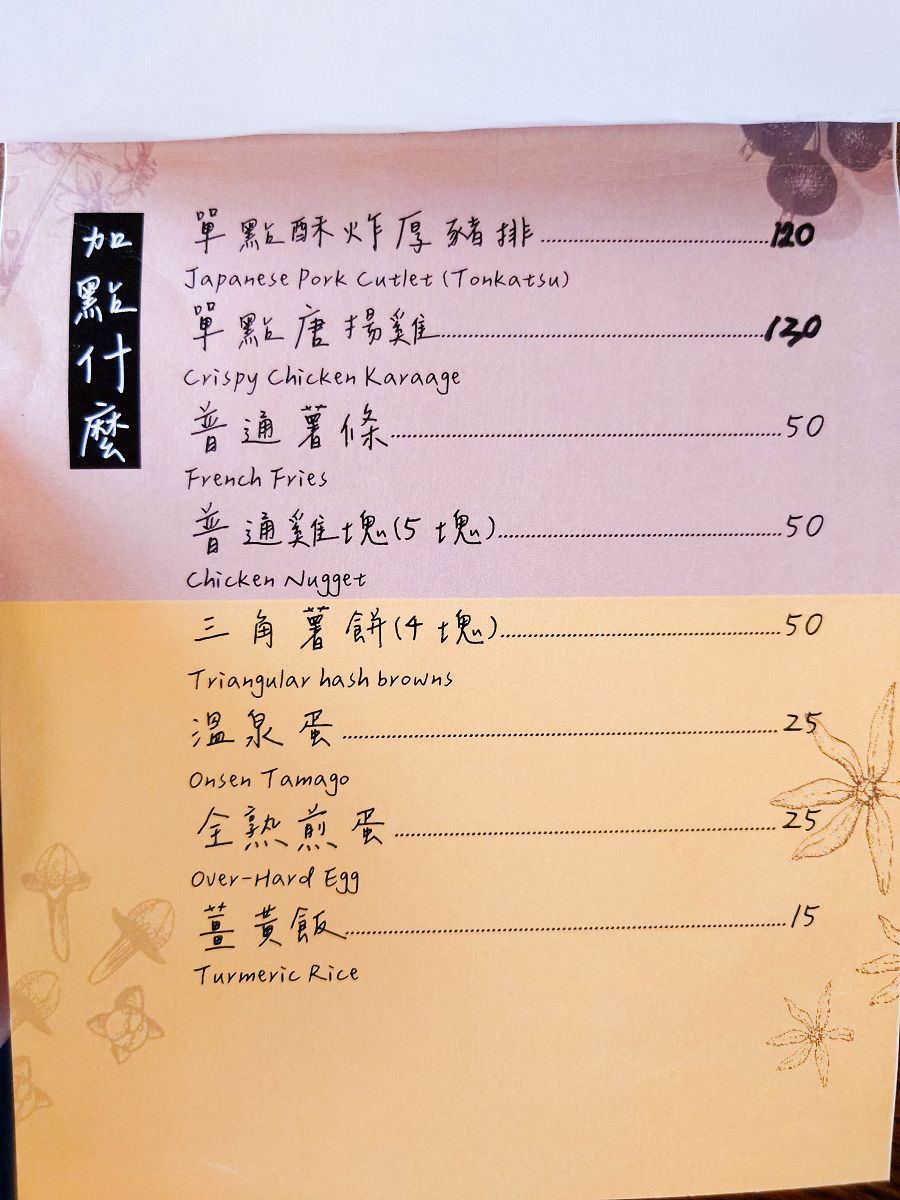 加點什麼
單點酥炸厚豬排 120
Japanese Pork Cutlet (Tonkatsu)
單點唐揚雞 130
Crispy Chicken Karaage
普通薯條 50
French Fries
普通雞塊(5塊) 50
Chicken Nugget
三角薯餅(4塊) 50
Triangular hash browns
溫泉蛋 25
Onsen Tamago
全熟煎蛋 25
Over-Hard Egg
薑黃飯 15
Turmeric Rice